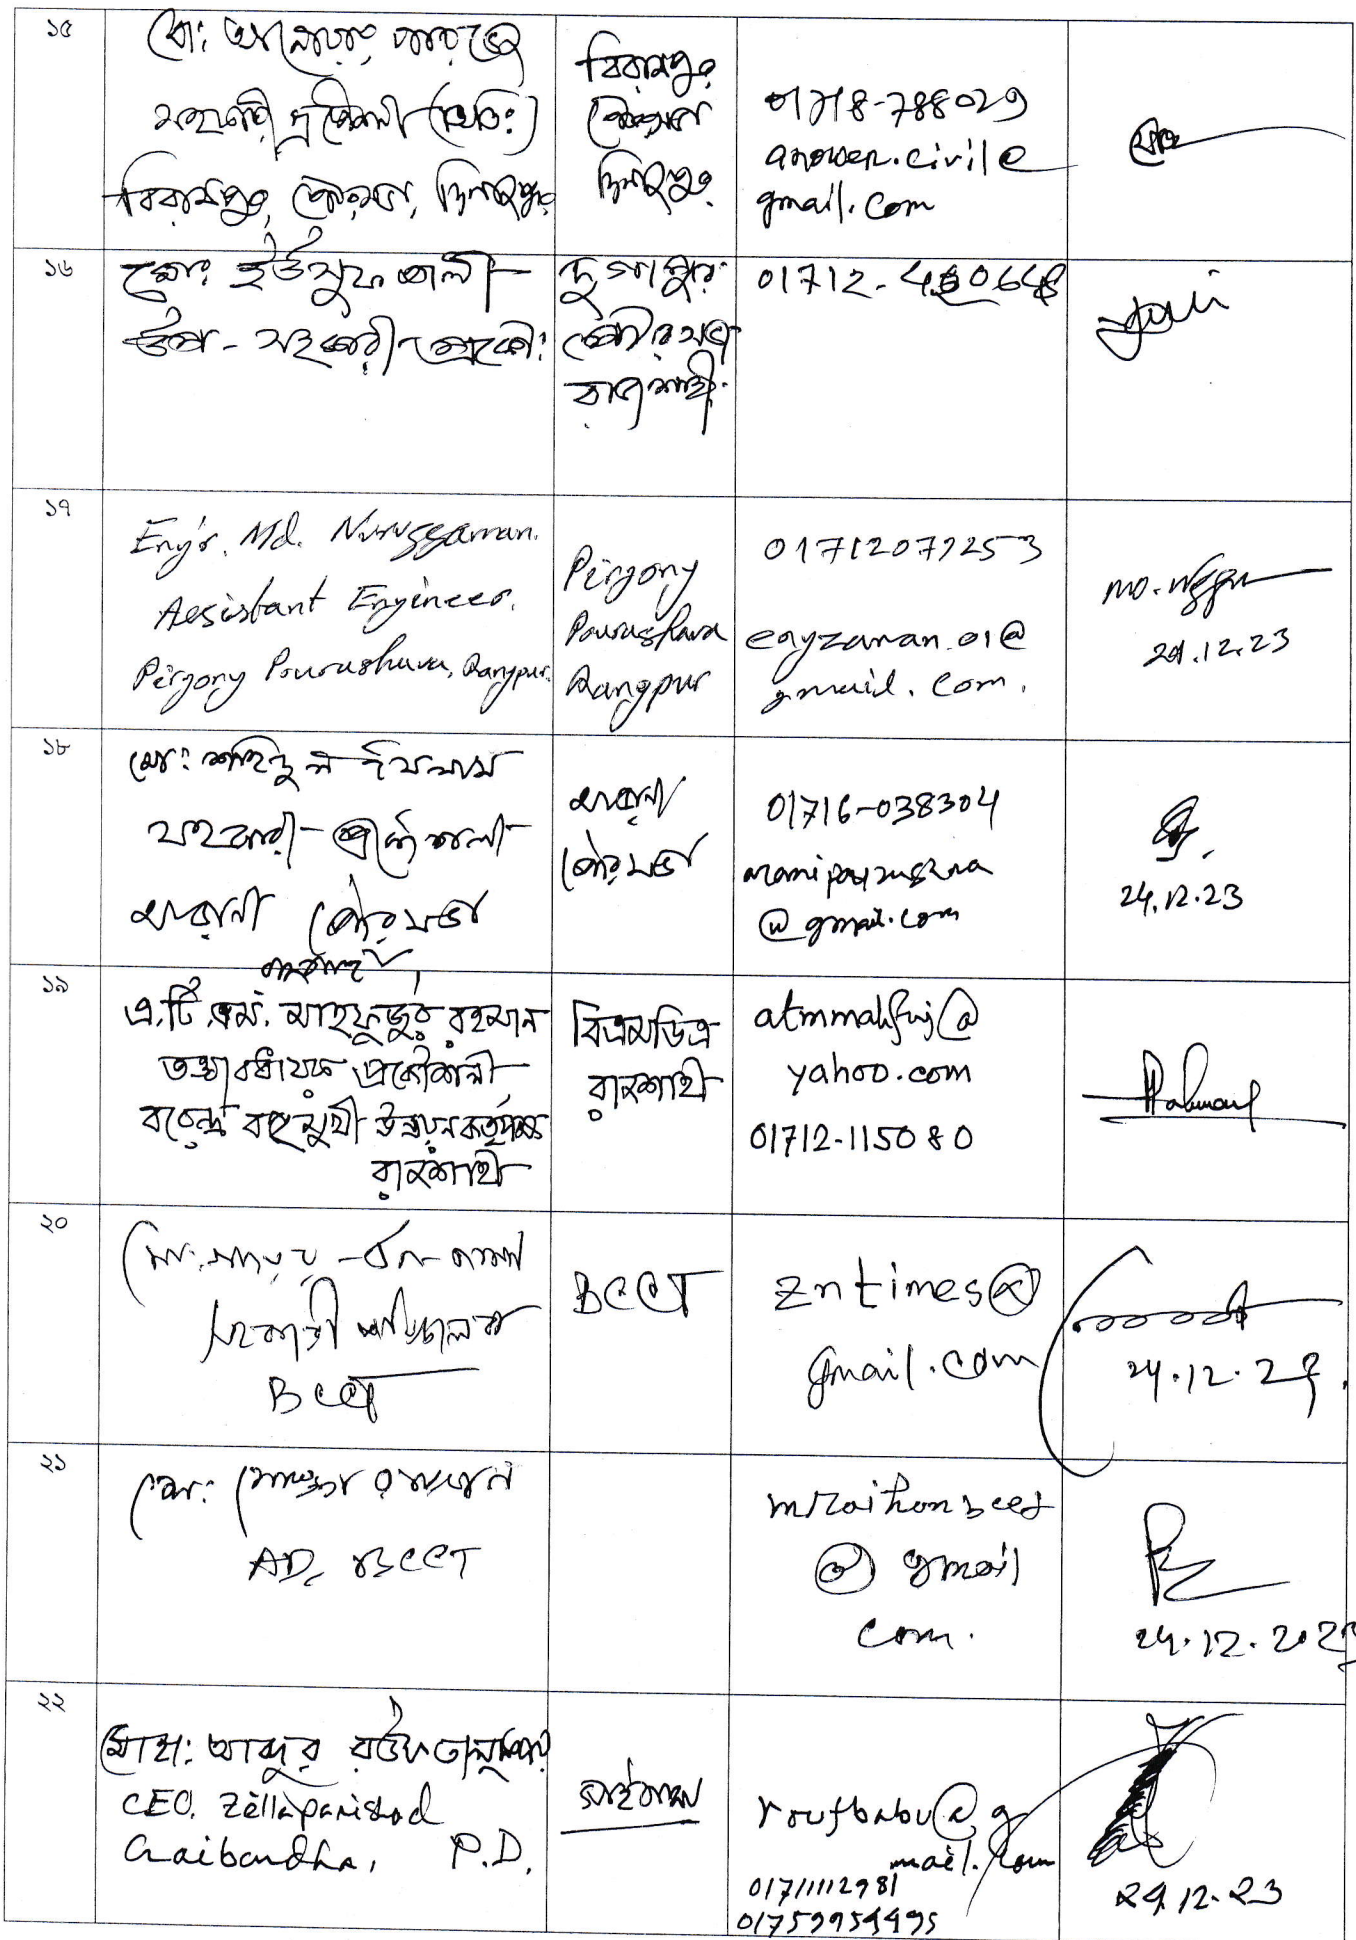 ১৫
মো: আনোয়ার
সহকারী প্রকৌশলী (সিভিল)
বিরামপুর, পৌরসভা, দিনাজপুর
বিরামপুর
পৌরসভা
দিনাজপুর
01718-788029
anower.civil@
gmail.com
১৬
মোঃ ইউসুফ আলী
উপ-সহকারী প্রকৌ:
দুর্গাপুর
পৌরসভা
রাজশাহী
01712-
১৭
Engr. Md. Nuruzzaman.
Assistant Engineer.
Pirgonj Pourushava, Rangpur.
Pirgonj
Pourushava
Rangpur
01712072253
engzaman.01@
gmail.com.
24.12.23
১৮
মো: শহিদুল ইসলাম
সহকারী প্রকৌশলী
পৌরসভা
পৌরসভা
01716-038304
@gmail.com
24.12.23
১৯
এ.টি.এম. মাহফুজুর রহমান
তত্ত্বাবধায়ক প্রকৌশলী
বরেন্দ্র বহুমুখী উন্নয়ন কর্তৃপক্ষ
রাজশাহী
বিএমডিএ
রাজশাহী
atmmahfuj@
yahoo.com
01712-115080
২০
সহকারী পরিচালক
BCCT
BCCT
zntimes@
gmail.com
24.12.23
২১
মো:
AD, BCCT
mraihonbcct
@gmail
com.
24.12.2023
২২
মোহা: আব্দুর রউফ তালুকদার
CEO, Zillaparishad
Gaibandha, P.D.
গাইবান্ধা
roufbabu@g
mail.com
01711112981
01759954495
24.12.23